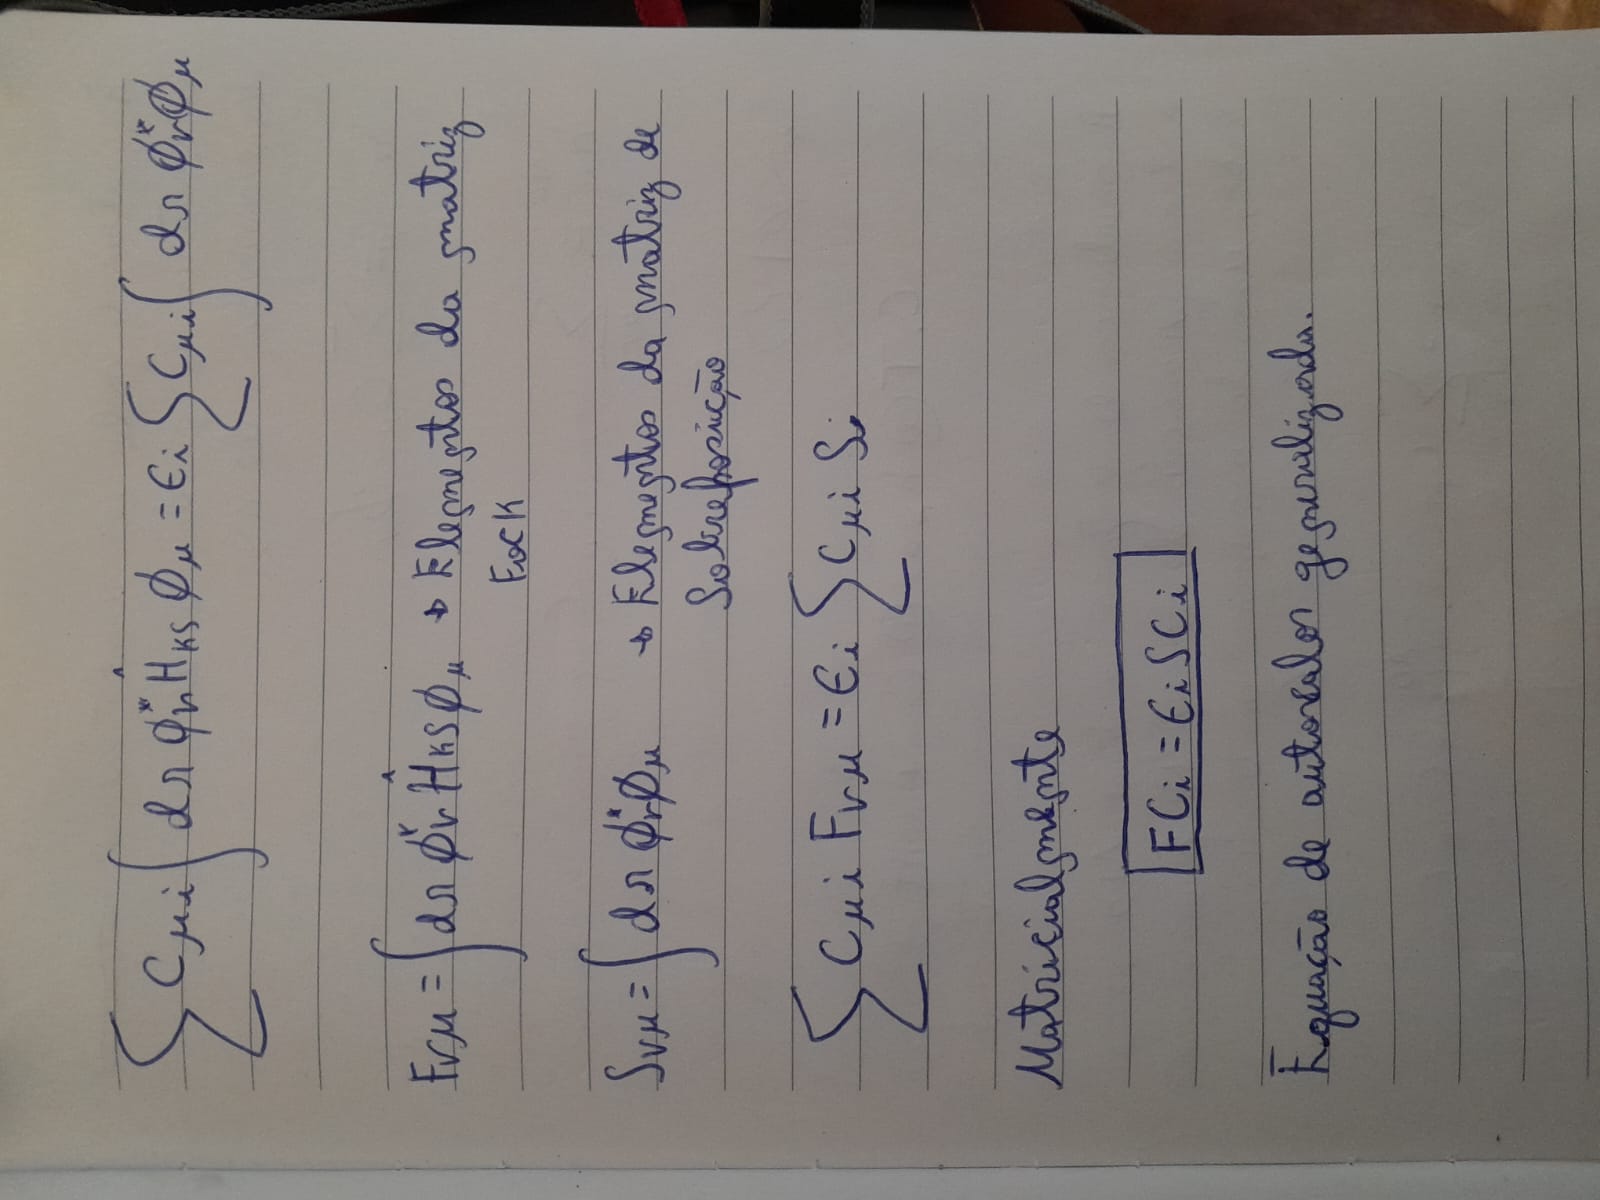 ∑ Cμi ∫ dr ϕν* Ĥks ϕμ = Ei ∑ Cμi ∫ dr ϕν* ϕμ
Fνμ = ∫ dr ϕν* Ĥks ϕμ → Elementos da matriz
Fock
Sνμ = ∫ dr ϕν* ϕμ → Elementos da matriz de
Sobreposição
∑ Cμi Fνμ = Ei ∑ Cμi Si
Matricialmente
FCi = Ei SCi
Equação de autovalor generalizada.